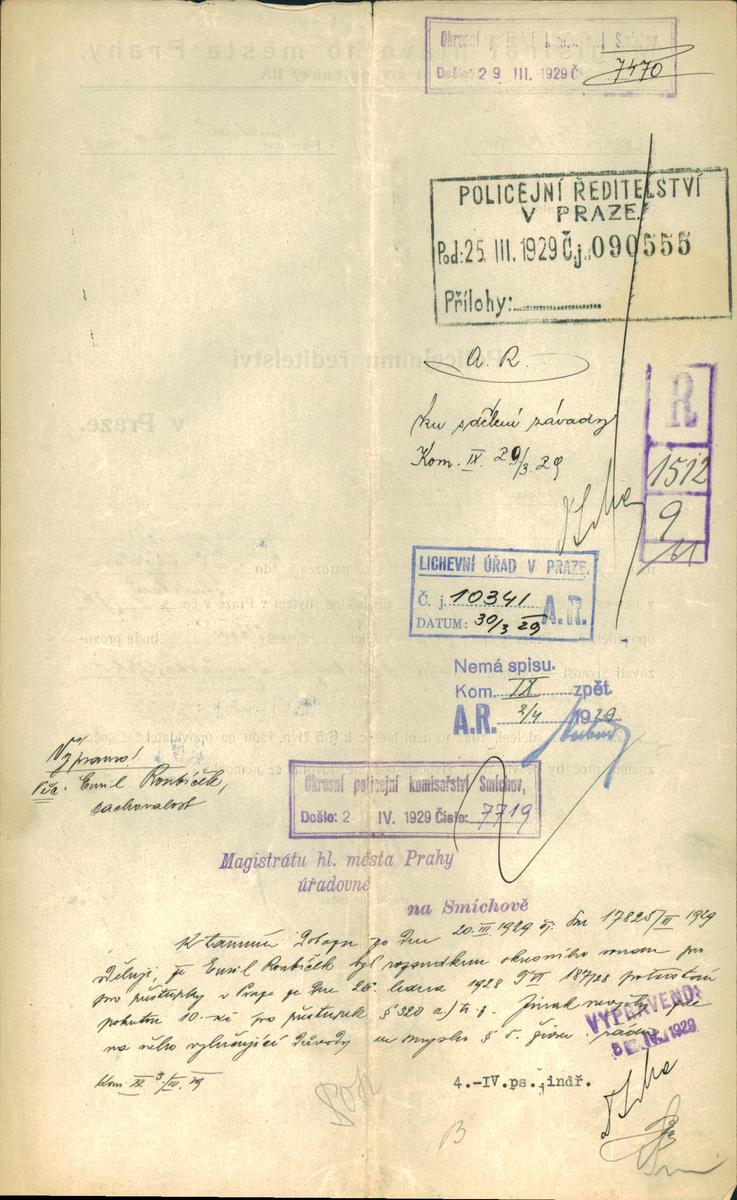 Okresní policejní komisařství Smíchov,
Došlo: 29. III. 1929 Č. 7470
POLICEJNÍ ŘEDITELSTVÍ
V PRAZE.
Pod: 25. III. 1929 Č.j. 090555
Přílohy:
A. R.
ku sdělení závady
Kom. IX. 29/3. 29
R
1512
9
LICHEVNÍ ÚŘAD V PRAZE.
Č. j. 10341
DATUM: 30/3 29 A.R.
Nemá spisu.
Kom. IX zpět.
A.R. 2/4 1929
Výpravno!
Věc. Emil Roubíček,
zachovalost
Okresní policejní komisařství Smíchov,
Došlo: 2 IV. 1929 Číslo: 7719
Magistrátu hl. města Prahy
úřadovně
na Smíchově
K tamnímu dotazu ze dne 20. III 1929 čj. 17825/II 1929
sděluji, že Emil Roubíček byl rozsudkem okresního soudu pro
pro přestupky v Praze ze dne 26. ledna 1928 T VI 187/28 potrestán
pokutou 10.- Kč pro přestupek § 320 a.) tr. z. Jinak nejsou zde
na něho vylučující důvody ve smyslu § 5. živn. řádu.
VYPRAVENO
5 IV. 1929
Kom. IX 3/IV. 29
4.-IV.ps. indř.
B